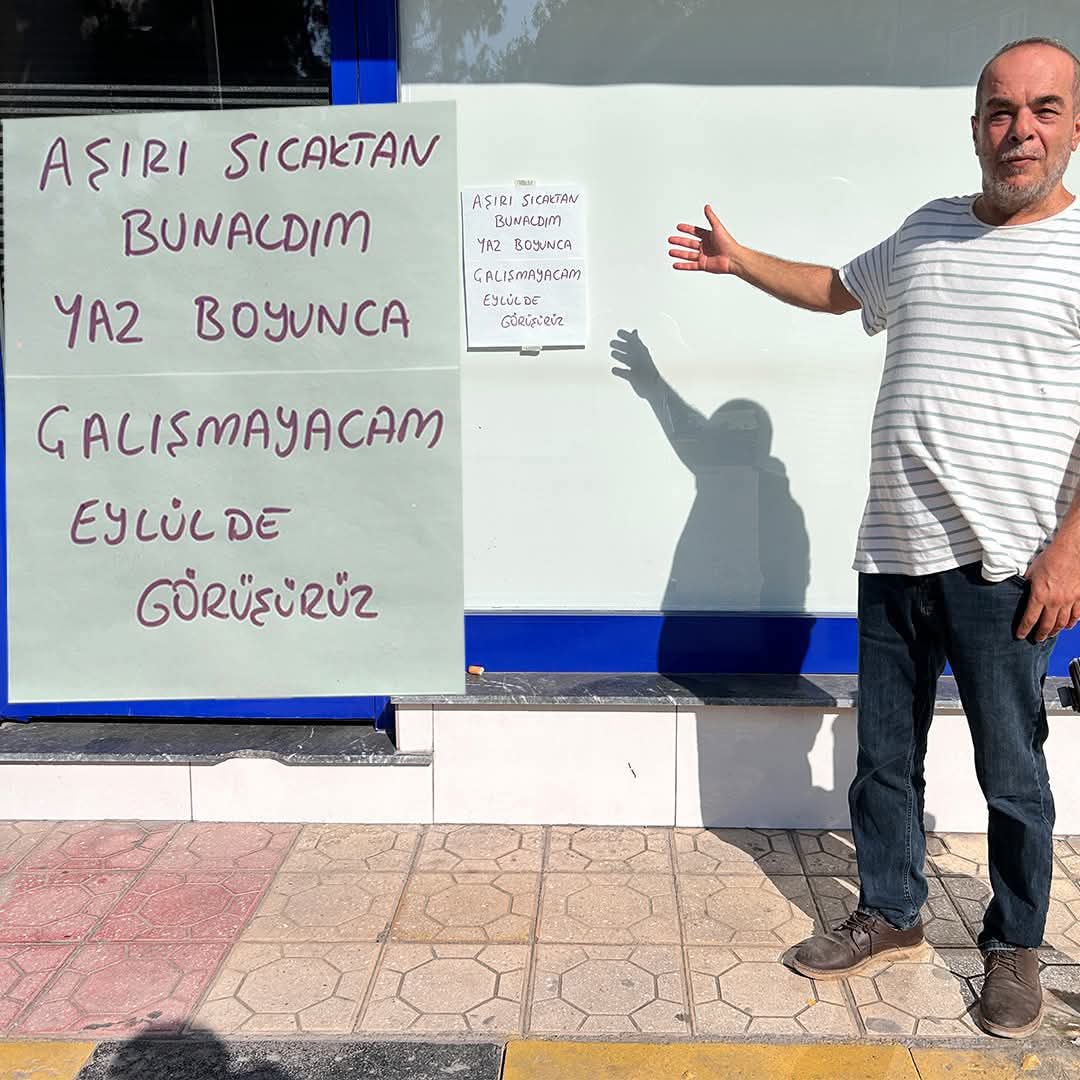 AŞIRI SICAKTAN
BUNALDIM
YAZ BOYUNCA
ÇALIŞMAYACAM
EYLÜLDE
GÖRÜŞÜRÜZ
AŞIRI SICAKTAN
BUNALDIM
YAZ BOYUNCA
ÇALIŞMAYACAM
EYLÜLDE
GÖRÜŞÜRÜZ